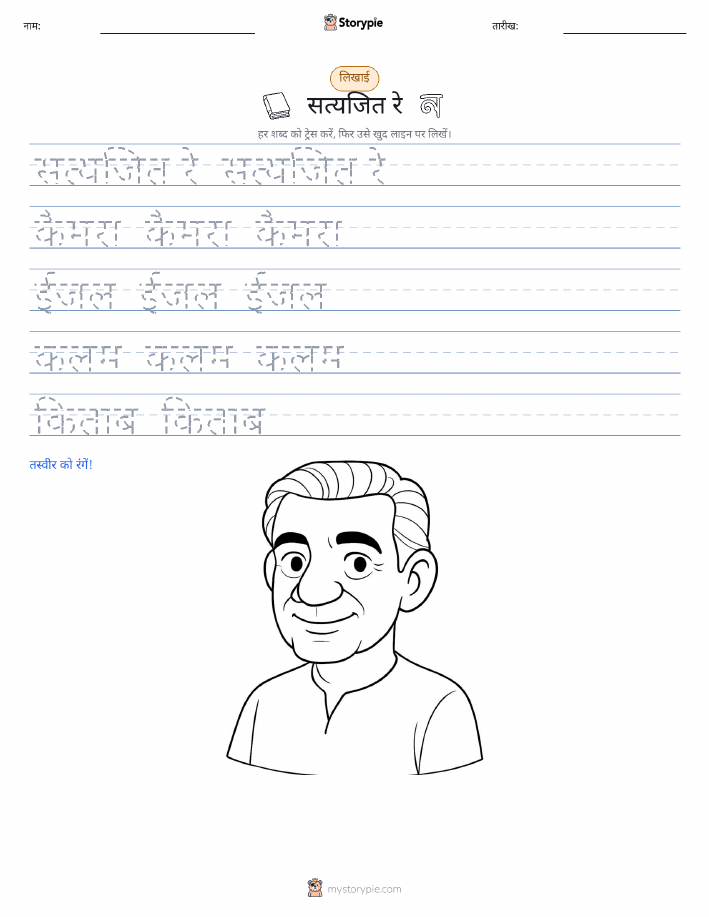 नाम:
Storypie
तारीख:
लिखाई
सत्यजित रे न
हर शब्द को ट्रेस करें, फिर उसे खुद लाइन पर लिखें।
सत्यजित रे सत्यजित रे
कैमरा कैमरा कैमरा
ईजल ईजल ईजल
कलम कलम कलम
किताब किताब
तस्वीर को रंगें!
mystorypie.com